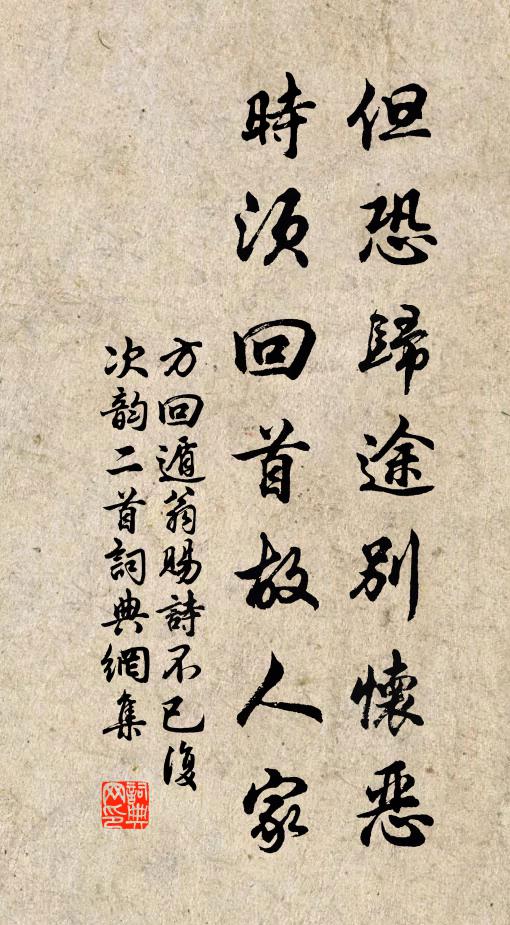 但恐歸途別懷惡
時須回首故人家
方回遁翁賜詩不已復
次韵二首詞典網集
詞典
网印